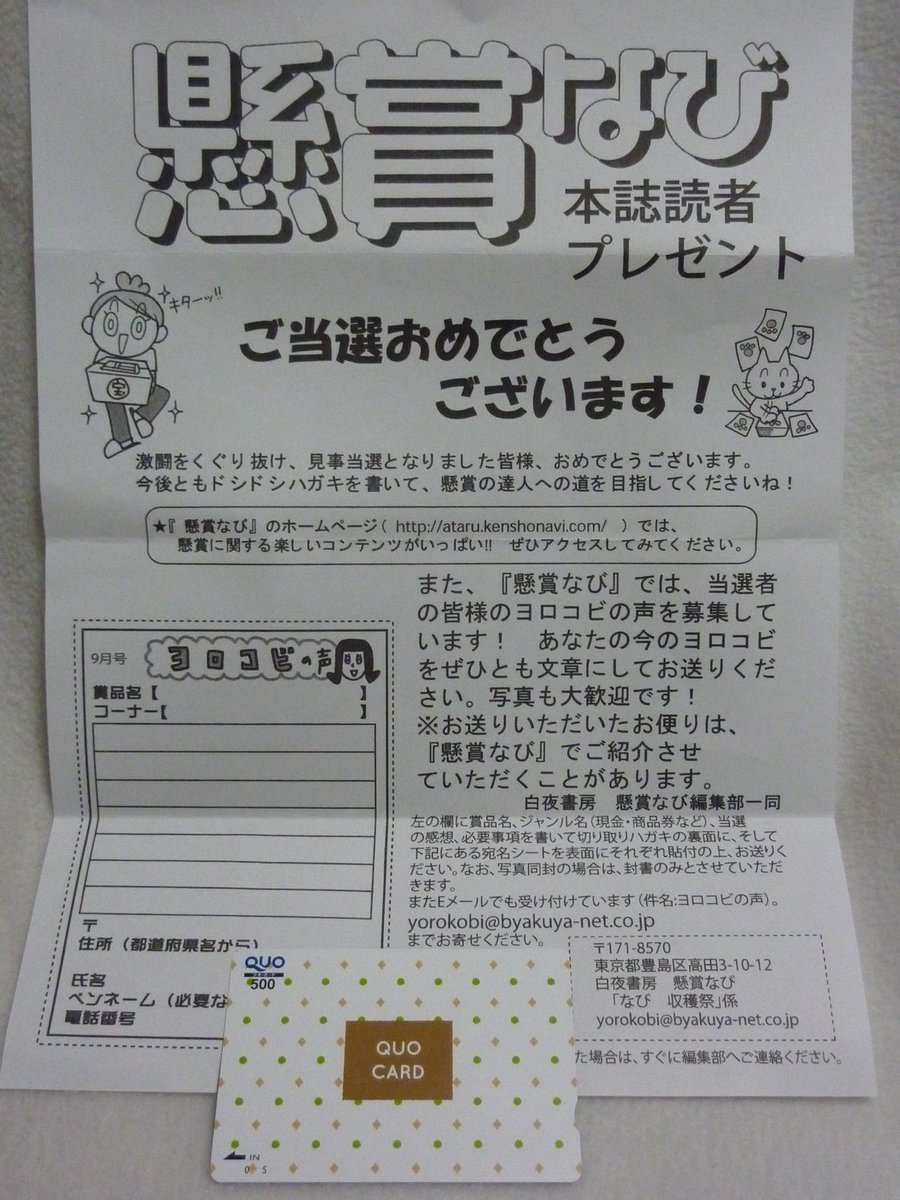 懸賞なび
本誌読者
プレゼント
キターッ!!
宝
ご当選おめでとう
ございます!
激闘をくぐり抜け、見事当選となりました皆様、おめでとうございます。
今後ともドシドシハガキを書いて、懸賞の達人への道を目指してくださいね!
★『懸賞なび』のホームページ( http://ataru.kenshonavi.com/ )では、
懸賞に関する楽しいコンテンツがいっぱい!! ぜひアクセスしてみてください。
また、『懸賞なび』では、当選者
の皆様のヨロコビの声を募集して
います! あなたの今のヨロコビ
をぜひとも文章にしてお送りくだ
さい。写真も大歓迎です!
※お送りいただいたお便りは、
『懸賞なび』でご紹介させ
ていただくことがあります。
白夜書房 懸賞なび編集部一同
左の欄に賞品名、ジャンル名(現金・商品券など)、当選
の感想、必要事項を書いて切り取りハガキの裏面に、そして
下記にある宛名シートを表面にそれぞれ貼付の上、お送りく
ださい。なお、写真同封の場合は、封書のみとさせていただ
きます。
またEメールでも受け付けています(件名:ヨロコビの声)。
yorokobi@byakuya-net.co.jp
までお寄せください。
9月号
ヨロコビの声
賞品名【 】
コーナー【 】
〒
住所(都道府県名から)
氏名
ペンネーム(必要な
電話番号
〒171-8570
東京都豊島区高田3-10-12
白夜書房 懸賞なび
「なび 収穫祭」係
yorokobi@byakuya-net.co.jp
た場合は、すぐに編集部へご連絡ください。
QUO
クオ・カード
500
QUO
CARD
IN
0 5